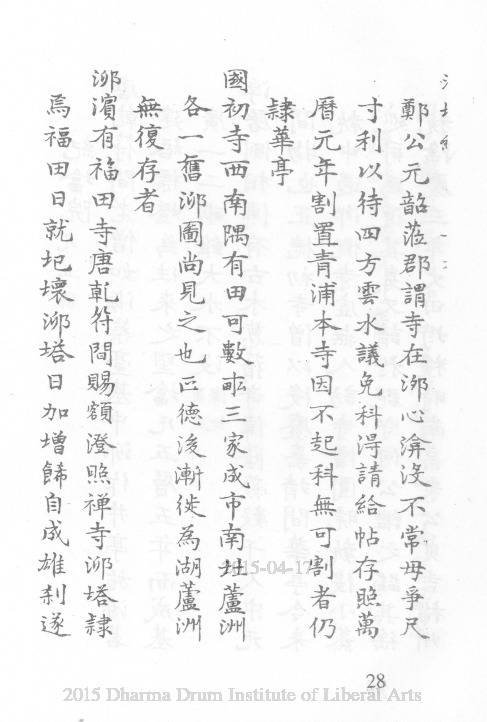 鄭公元韶蒞郡謂寺在泖心渰沒不常毋爭尺
寸利以待四方雲水議免科淂請給帖存照萬
曆元年割置青浦本寺因不起科無可割者仍
隷華亭
國初寺西南隅有田可數畝三家成市南地蘆洲
各一舊泖圖尚見之也正德後漸徙為湖蘆洲
無復存者
泖濱有福田寺唐乾符間賜額澄照禅寺泖塔隷
焉福田日就圯壞泖塔日加增餙自成雄刹遂
2015-04-17
28
2015 Dharma Drum Institute of Liberal Arts